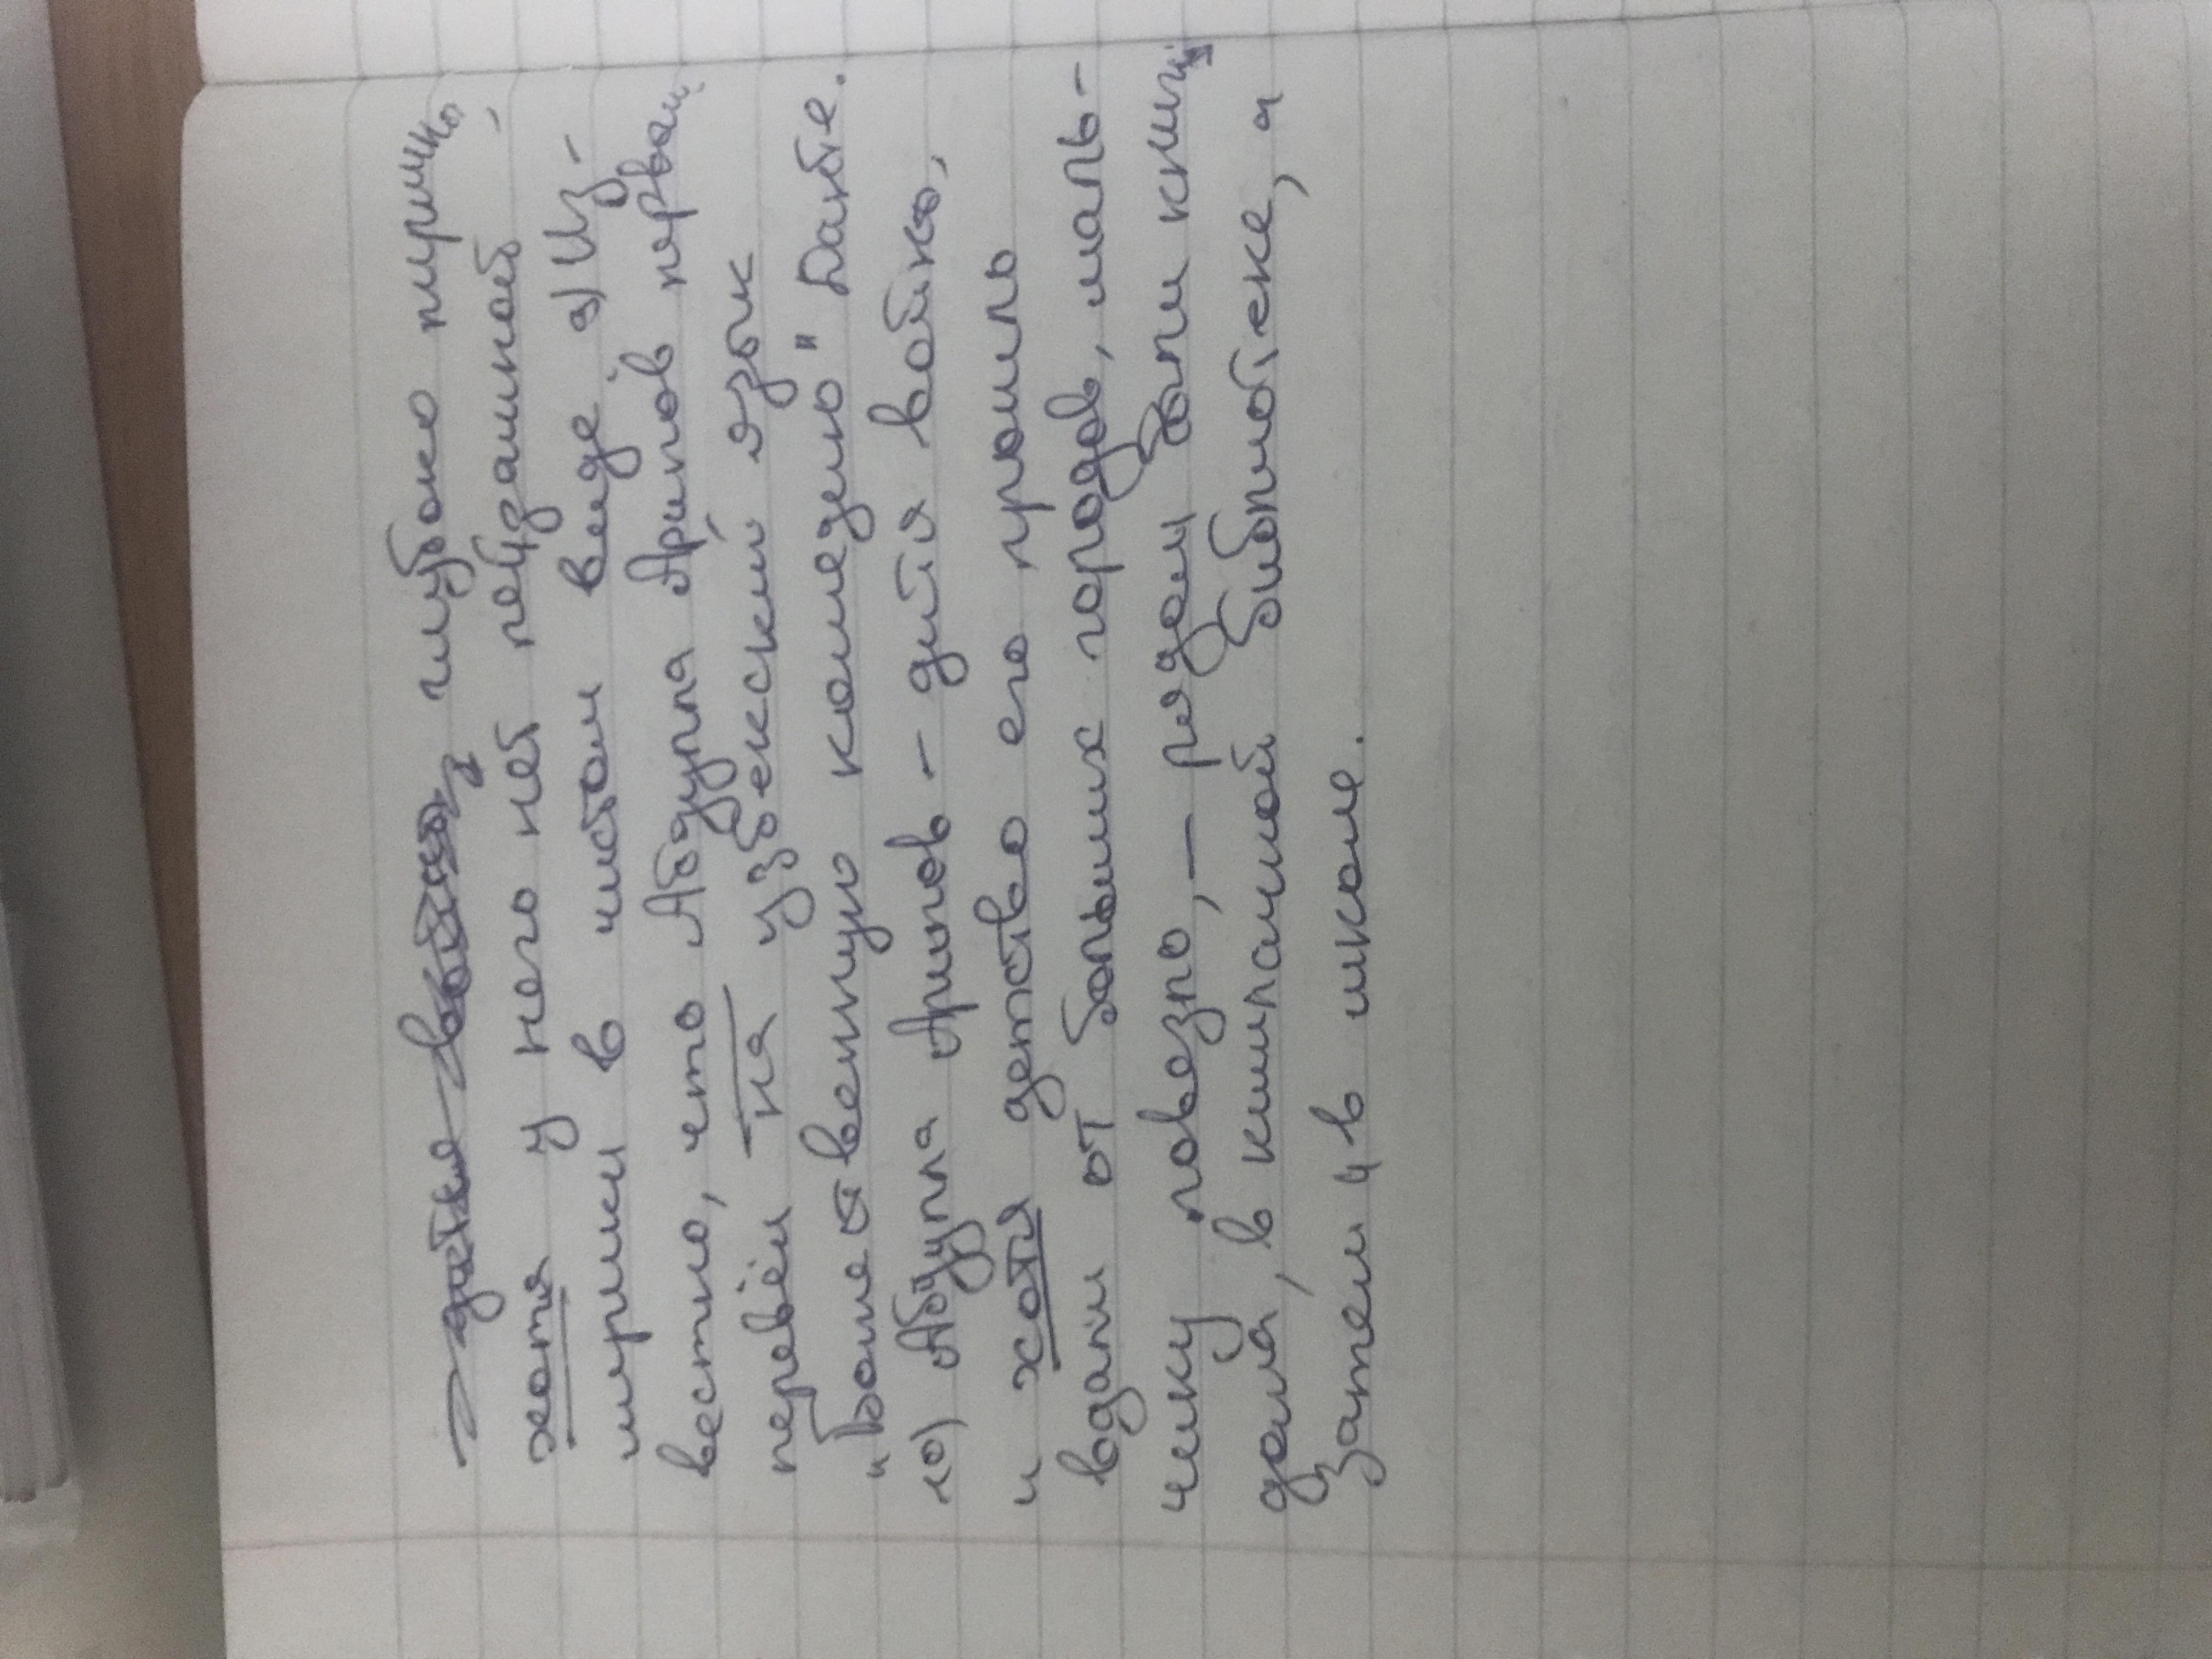 – дитя войны, глубоко лирично,
хотя у него нет пейзажной
лирики в чистом виде 9) Из-
вестно, что Абдулла Арипов первым
перевёл на узбекский язык
"Божественную комедию" Данте.
10) Абдулла Арипов – дитя войны,
и хотя детство его прошло
вдали от больших городов, маль-
чику повезло, – рядом были книги
дома, в кишлачной библиотеке, а
затем и в школе.